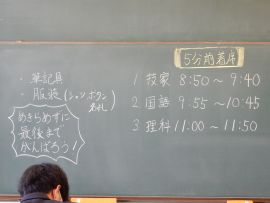 5分前着席
・筆記具
・服装(シャツ ボタン
名札)
あきらめずに
最後まで
がんばろう!
1 技家 8:50 〜 9:40
2 国語 9:55 〜 10:45
3 理科 11:00 〜 11:50